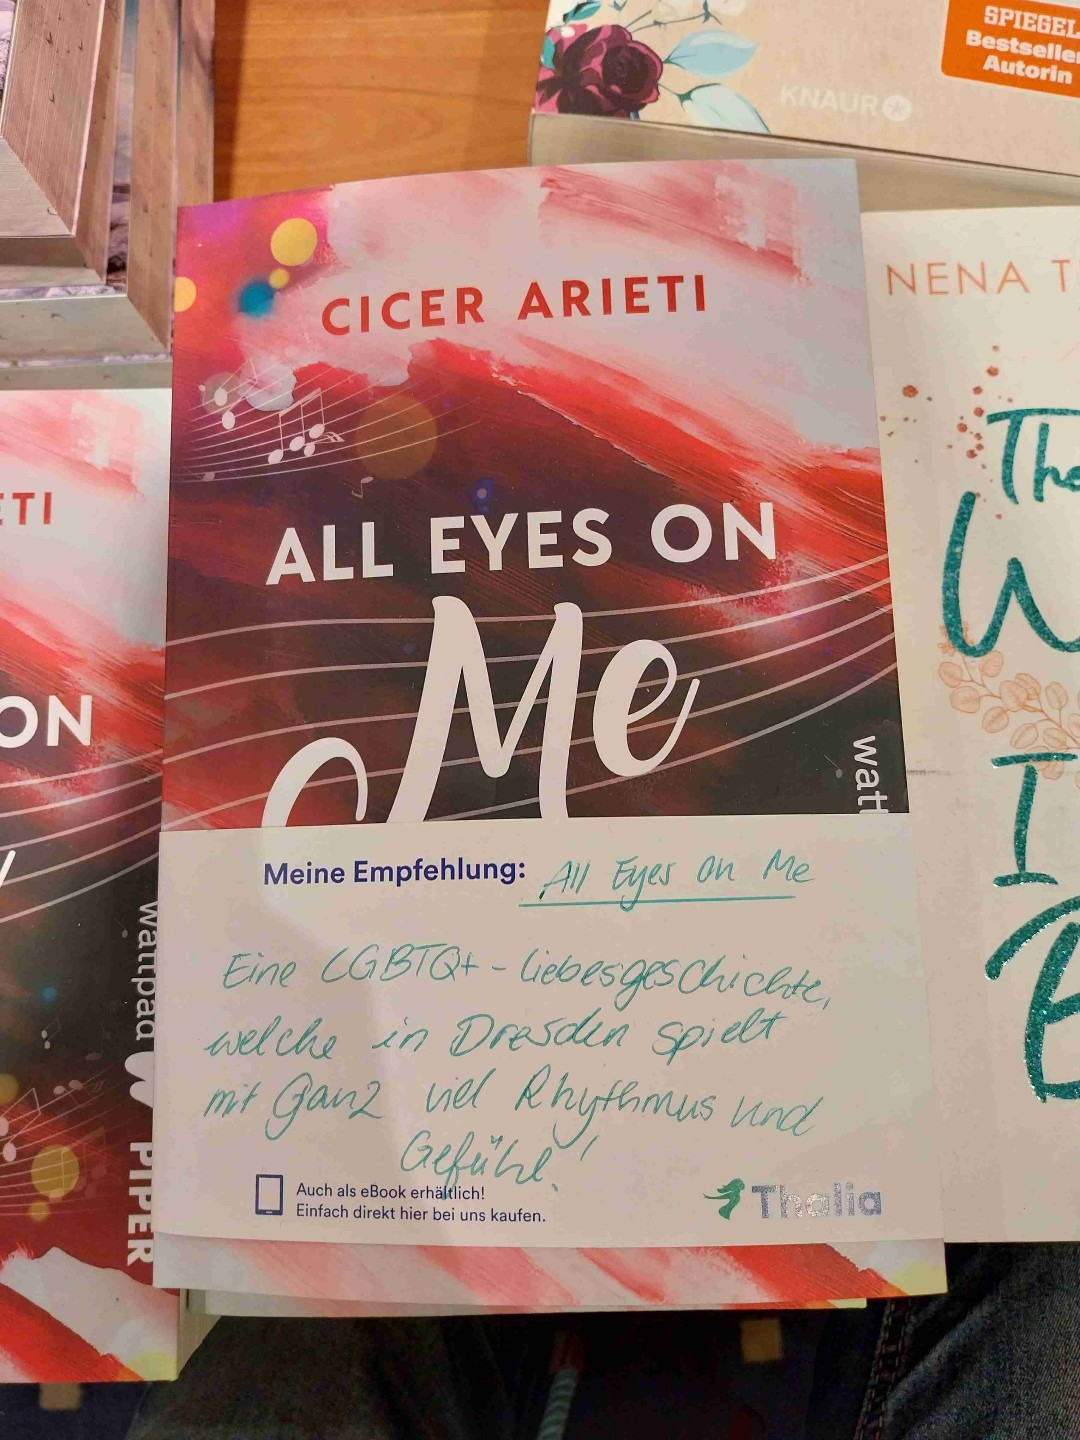 SPIEGEL
Bestseller
Autorin
KNAUR
CICER ARIETI
NENA
ALL EYES ON
Me
watt
ETI
ON
wattpad
PIPER
The
I
Meine Empfehlung: All Eyes on Me
Eine LGBTQ+ - Liebesgeschichte,
welche in Dresden spielt
mit Ganz viel Rhythmus und
Gefühl!
Auch als eBook erhältlich!
Einfach direkt hier bei uns kaufen.
Thalia